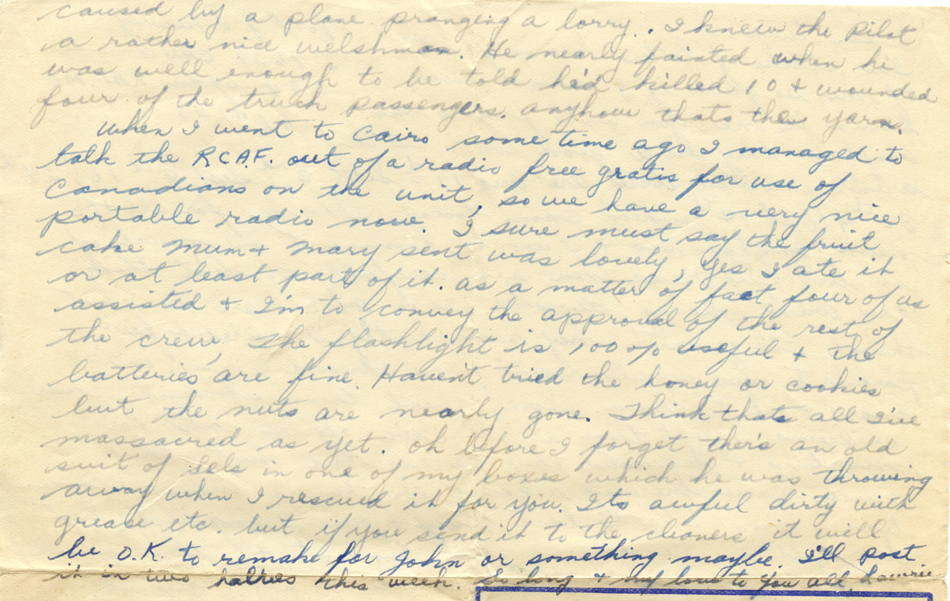 caused by a plane pranging a lorry. I knew the Pilot
a rather nice welshman. He nearly fainted when he
was well enough to be told he'd killed 10 + wounded
four of the truck passengers. anyhow thats the yarn.
When I went to Cairo some time ago I managed to
talk the R.C.A.F. out of a radio free gratis for use of
Canadians on the unit, so we have a very nice
portable radio now. I sure must say the fruit
cake Mum + Mary sent was lovely, yes I ate it
or at least part of it. as a matter of fact four of us
assisted + I'm to convey the approval of the rest of
the crew, The flashlight is 100% useful + the
batteries are fine. Haven't tried the honey or cookies
but the nuts are nearly gone. Think thats all I've
massacred as yet. oh before I forget there's an old
suit of Lels in one of my boxes which he was throwing
away when I rescued it for you. Its awful dirty with
grease etc. but if you send it to the cleaners it will
be O.K. to remake for John or something maybe. I'll post
it in two halves this week. So long + my love to you all, Lawrie